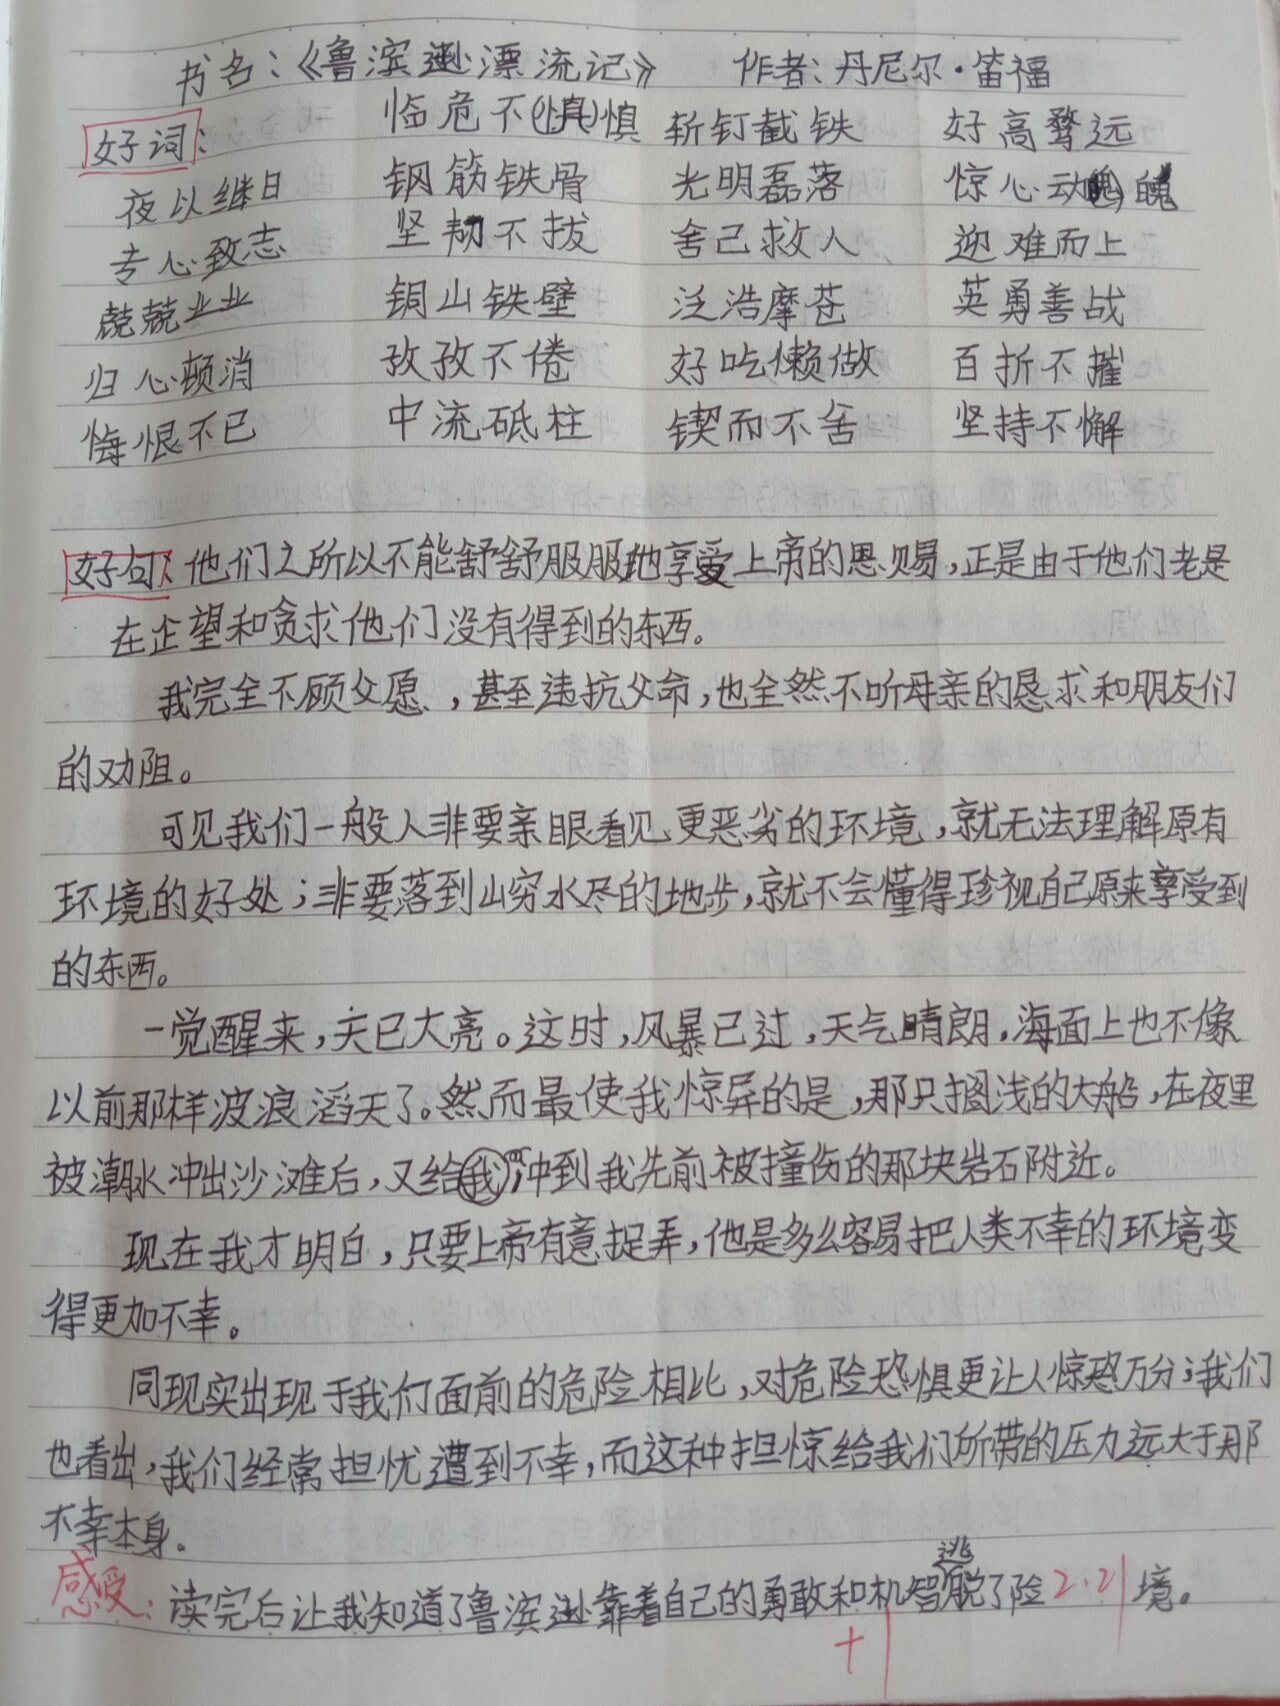 书名:《鲁滨逊漂流记》 作者:丹尼尔·笛福
好词:
临危不(慎)慎 斩钉截铁 好高骛远
夜以继日 钢筋铁骨 光明磊落 惊心动魄
专心致志 坚韧不拔 舍己救人 迎难而上
兢兢业业 铜山铁壁 泛浩摩苍 英勇善战
归心顿消 孜孜不倦 好吃懒做 百折不摧
悔恨不已 中流砥柱 锲而不舍 坚持不懈
好句: 他们之所以不能舒舒服服地享受上帝的恩赐,正是由于他们老是
在企望和贪求他们没有得到的东西。
我完全不顾父愿,甚至违抗父命,也全然不听母亲的恳求和朋友们
的劝阻。
可见我们一般人非要亲眼看见更恶劣的环境,就无法理解原有
环境的好处;非要落到山穷水尽的地步,就不会懂得珍视自己原来享受到
的东西。
一觉醒来,天已大亮。这时,风暴已过,天气晴朗,海面上也不像
以前那样波浪滔天了。然而最使我惊异的是,那只搁浅的大船,在夜里
被潮水冲出沙滩后,又给我冲到我先前被撞伤的那块岩石附近。
现在我才明白,只要上帝有意捉弄,他是多么容易把人类不幸的环境变
得更加不幸。
同现实出现于我们面前的危险相比,对危险恐惧更让人惊恐万分;我们
也看出,我们经常担忧遭到不幸,而这种担惊给我们所带的压力远大于那
不幸本身。
感受: 读完后让我知道了鲁滨逊靠着自己的勇敢和机智逃脱了险 2.21 境。
+1